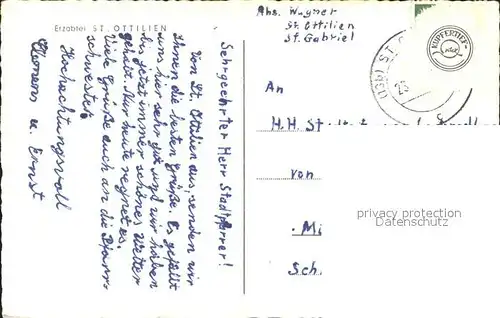 Erzabtei ST. OTTILIEN
Sehrgeehrter Herr Stadtpfarrer!
Von St. Ottilien aus, senden wir
Ihnen die besten Grüße. Es gefällt
uns hier sehr gut und wir haben
bis jetzt immer schönes Wetter
gehabt. Nur heute regnet es.
Liebe Grüße auch an die Pfarr-
schwester
Hochachtungsvoll
Klemens u. Ernst
Abs. Wagner
St. Ottilien
St. Gabriel
KUPFERTIEF-
An
H. H.
von
Mi
Sch.
privacy protection
watermark